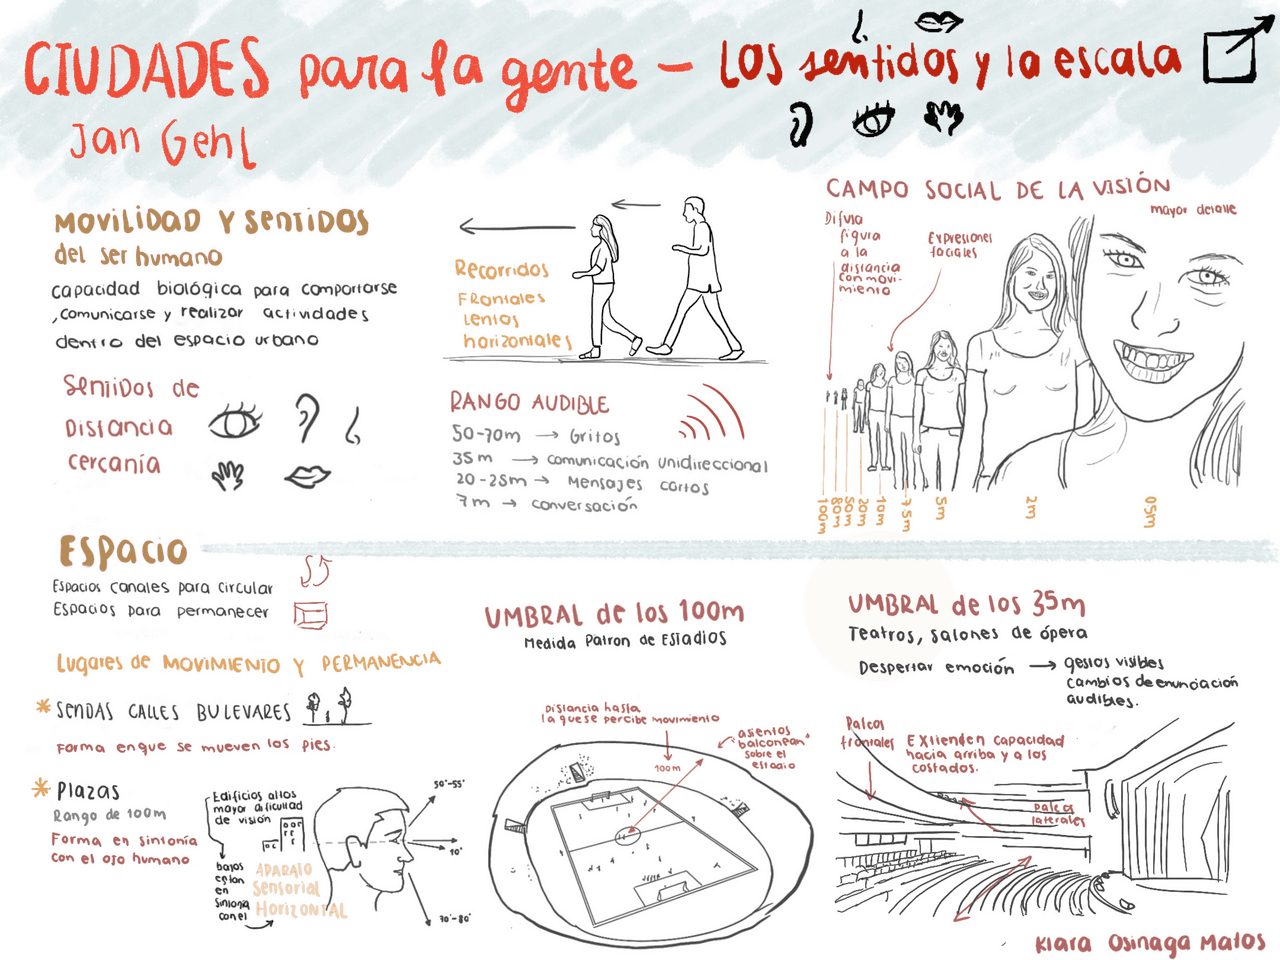 CIUDADES para la gente – LOS sentidos y la escala
Jan Gehl
MOVILIDAD Y SENTIDOS
del ser humano
Capacidad biológica para comportarse
, comunicarse y realizar actividades
dentro del espacio urbano
Sentidos de
Distancia
cercanía
Recorridos
Frontales
lentos
horizontales
RANGO AUDIBLE
50-70m → Gritos
35m → comunicación unidireccional
20-25m → Mensajes cortos
7m → conversación
CAMPO SOCIAL DE LA VISIÓN
mayor detalle
Difusa
figura
a la
distancia
con movi-
miento
Expresiones
faciales
100m
80m
50m
20m
10m
7.5m
5m
2m
0.5m
ESPACIO
Espacios canales para circular
Espacios para permanecer
Lugares de MOVIMIENTO Y PERMANENCIA
* SENDAS CALLES BULEVARES
Forma en que se mueven los pies.
* Plazas
Rango de 100m
Forma en sintonía
con el ojo humano
Edificios altos
mayor dificultad
de visión
bajos
estan
en
sintonia
con el
APARATO
Sensorial
HORIZONTAL
50°-55°
10°
70°-80°
UMBRAL de los 100m
Medida Patron de Estadios
Distancia hasta
la que se percibe movimiento
100m
"asientos
balconean"
sobre el
estadio
UMBRAL de los 35m
Teatros, salones de ópera
Despertar emoción → gestos visibles
cambios de enunciación
audibles.
Palcos
frontales
Extienden capacidad
hacia arriba y a los
costados.
palcos
laterales
Klara Osinaga Matos